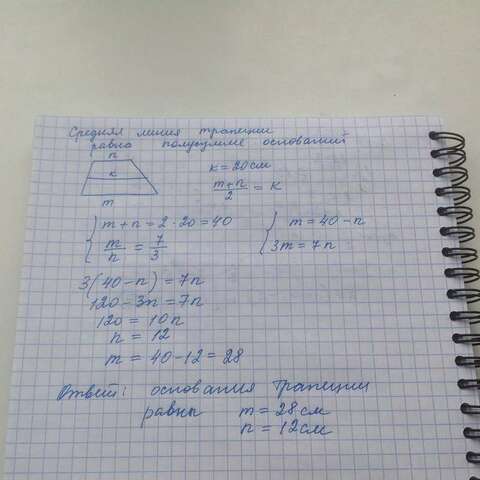 Средняя линия трапеции
равна полусумме оснований
n
k
m
k = 20 см
m+n/2 = k
{ m + n = 2 · 20 = 40
m/n = 7/3
{ m = 40 - n
3m = 7n
3(40 - n) = 7n
120 - 3n = 7n
120 = 10n
n = 12
m = 40 - 12 = 28
Ответ: основания трапеции
равны m = 28 см
n = 12 см